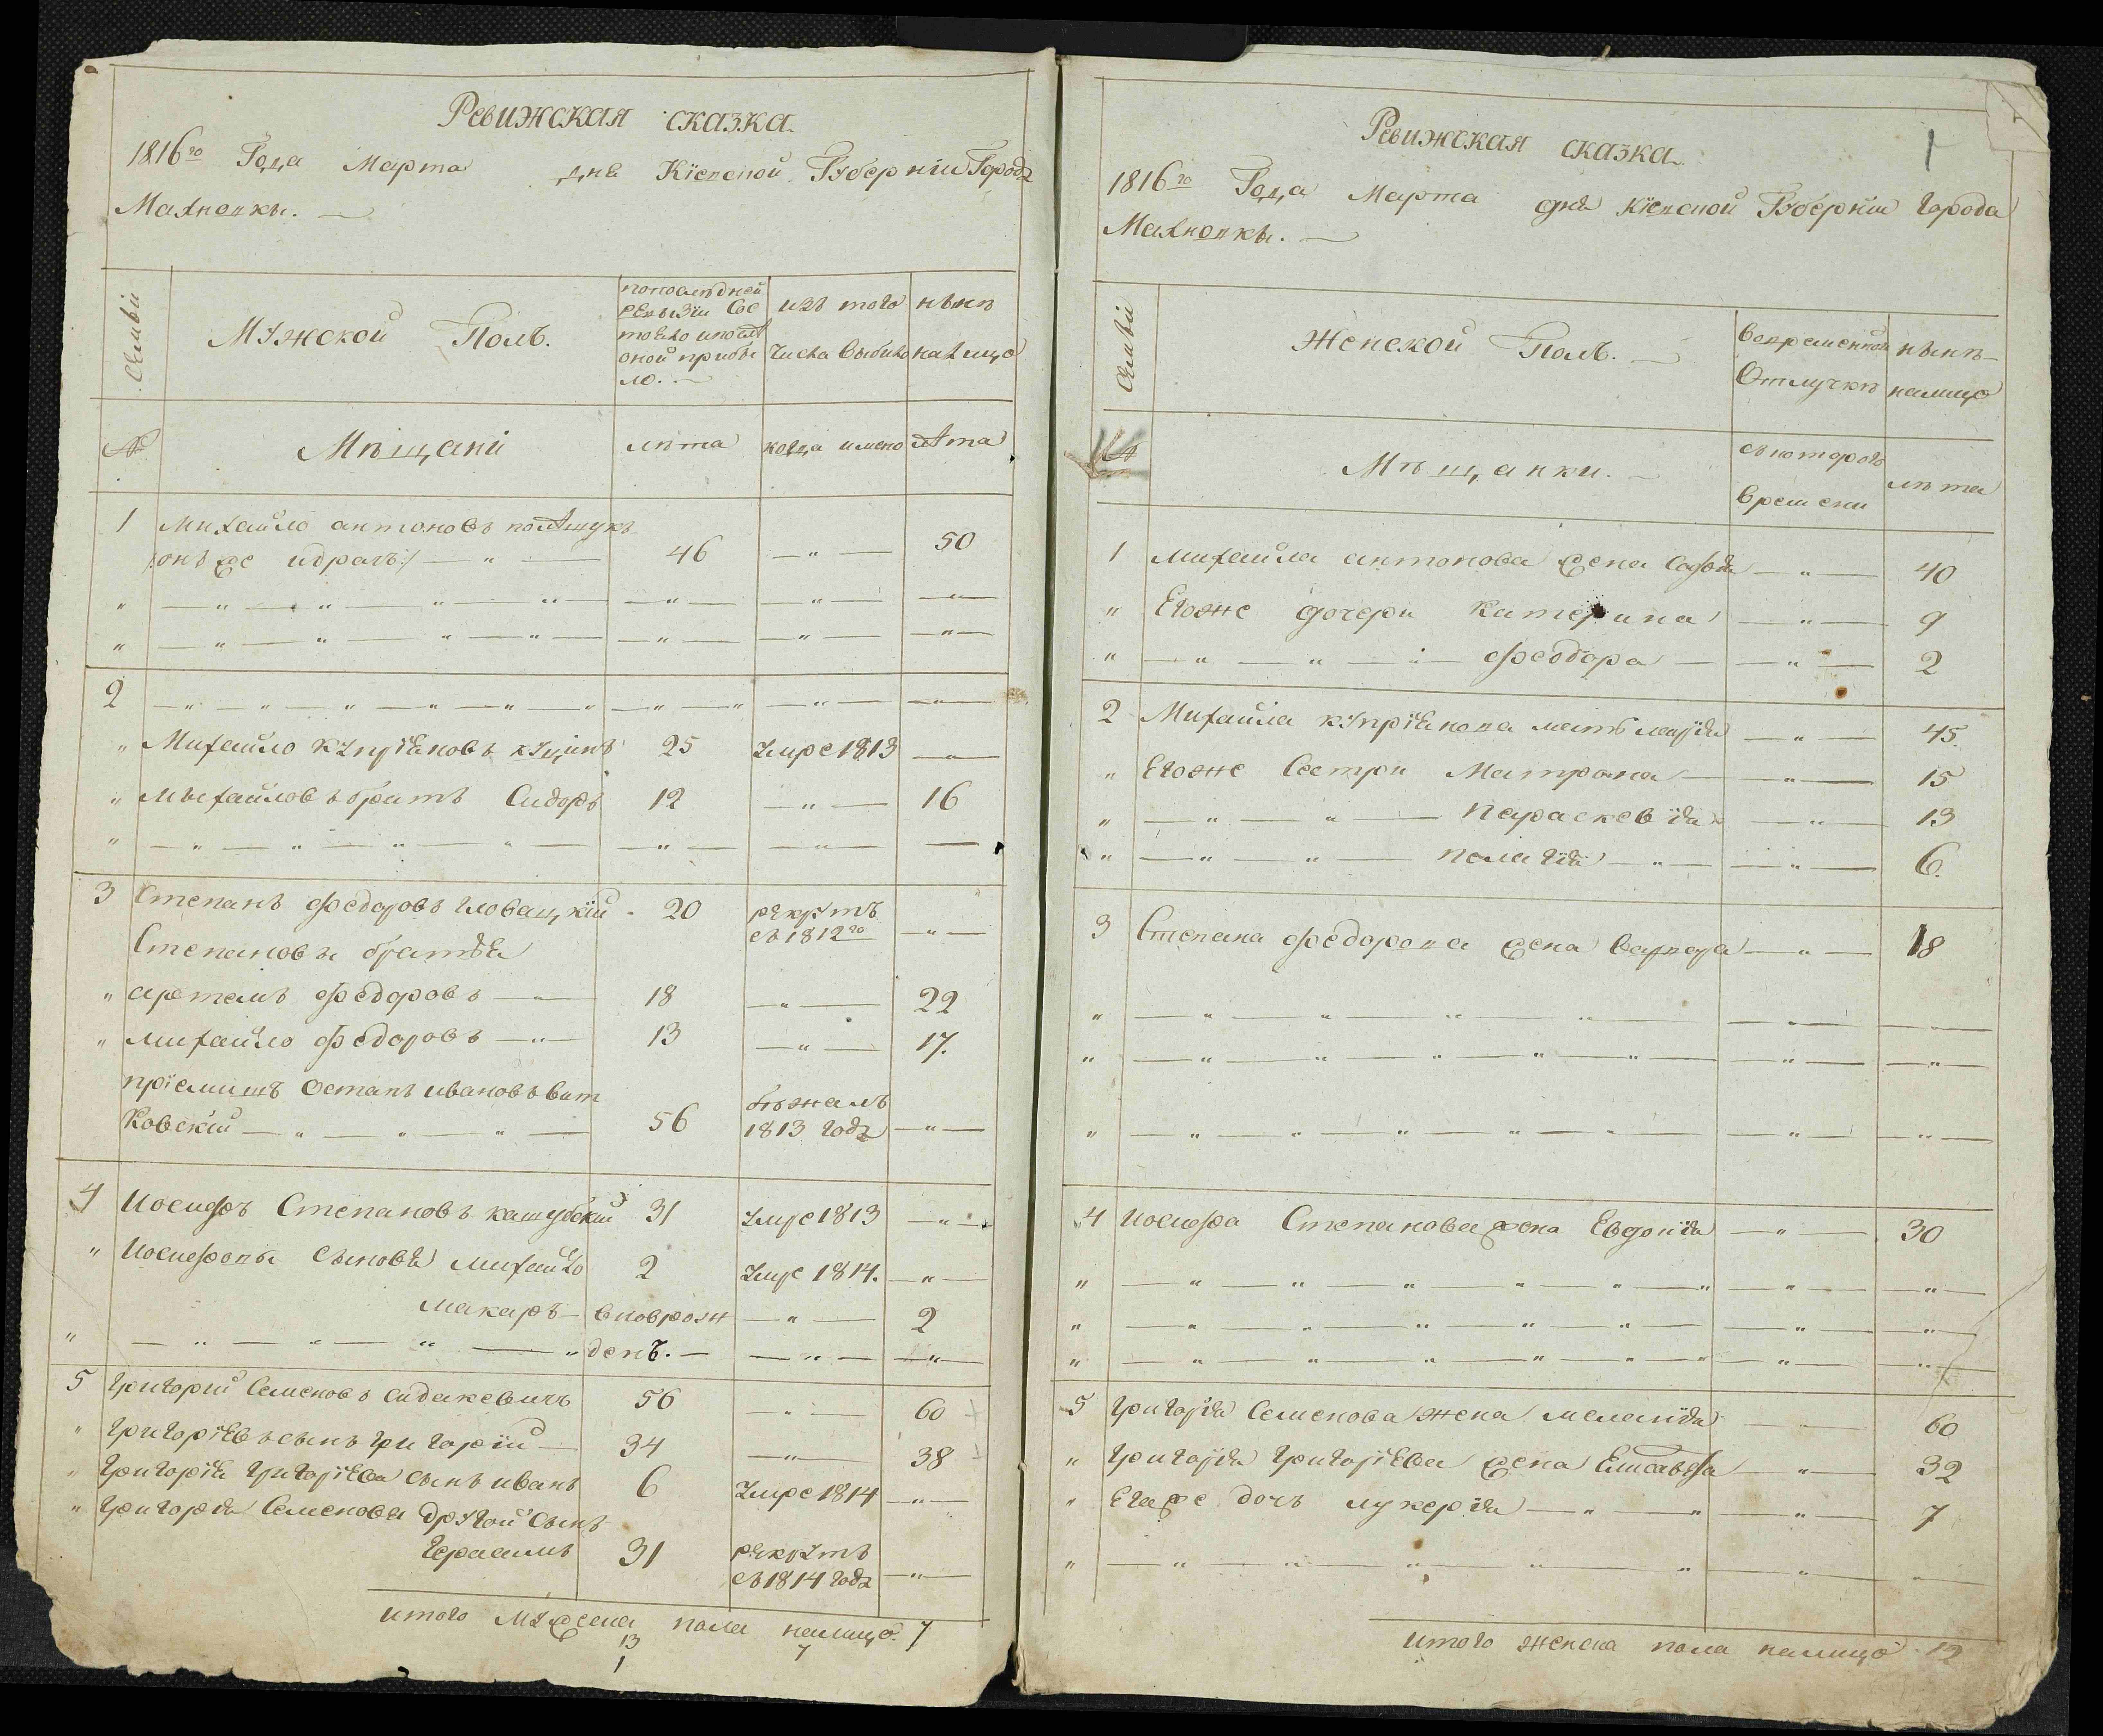 Ревижская сказка
1816го Года Марта дня Кіевской Губерніи Города
Махновки.
Семьи
Мужской Полъ.
попослѣдней ревизіи сос тояло ипослѣ оной прибы ло.
изъ того числа выбыло
нынѣ налицо
№
Мѣщани
лѣта
когда имено
лѣта
1 Михайло антоновъ полѣщукъ
/онъ же идрачъ:/ — " — 46 — " — 50
2
" Михайло купріяновъ куцинъ 25 умре 1813 —
" михайловъ братъ Сидоръ 12 — " — 16
3 Степанъ федоровъ гловацкій 20 рекрутъ съ 1812го — " —
Степановы братья
" артемъ федоровъ — 18 — " — 22
" михайло федоровъ — " — 13 — " — 17.
пріемишъ Остапъ ивановъ вит
ковскій — " — " — " — 56 бѣжалъ 1813 году — " —
4 Иосифъ Степановъ кашубскій 31 умре 1813 — " —
" Иосифовы сыновья михайло 2 умре 1814. — " —
макаръ — вноврож — " — 2
" — " — " — " — " денъ. — — " — — " —
5 григорий Семеновъ сидакевичъ 56 — " — 60
" григоріевъ сынъ григорій — 34 — " — 38
" григорія григоріева сынъ иванъ 6 умре 1814 — " —
" григорія Семенова другой сынъ
герасимъ 31 рекрутъ съ 1814 году — " —
итого мужеска пола налицо. 7
13 7
1
1
Ревижская сказка.
1816го Года Марта дня кіевской Губерніи города
Махновки.
Семьи
Женской Полъ.
вовременной Отлучкѣ
нынѣ налицо
№
Мѣщанки.
съкотораго времени
лѣта
1 михайла антонова жена софія — " — 40
" Егоже дочери Катерина — " — 9
" — " — " — феодора — — " — 2
2 Михайла купріянова мать марія — " — 45.
" Егоже Сестри Матрона — — " — 15
" — " — " — параскевія — " — 13
" — " — " — пелагія — " — — " — 6.
3 Степана федорова жена варвара — " — 18
4 иосифа Степанова жена Евдокія — " — 30
5 григорія Семенова жена меланія — 60
" григорія григоріева жена Елисавефа — " — 32
" Егоже дочь лукерія — " — " — " — 7
итого женска пола налицо 12